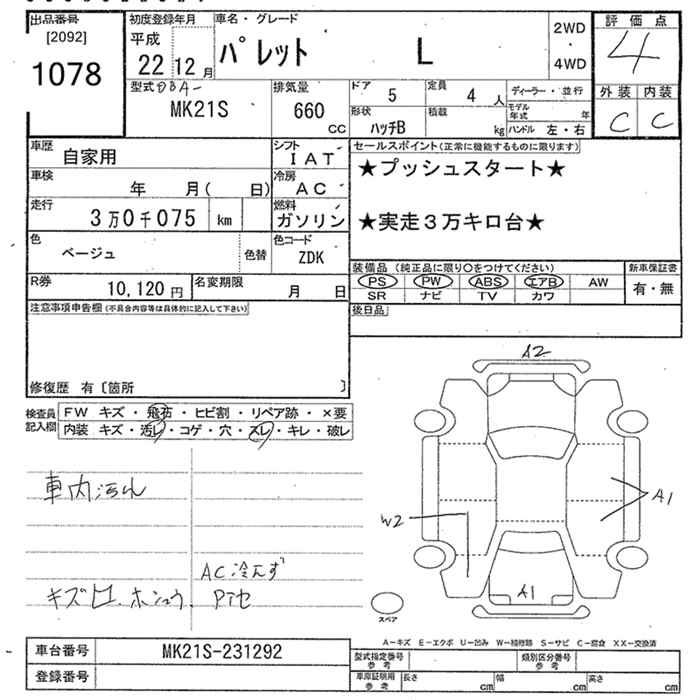 出品番号
[2092]
1078
初度登録年月
平成
22 12月
車名・グレード
パレット L
2WD
・
4WD
評価点
4
外装 内装
C C
型式 DBA-
MK21S
排気量
660
CC
ドア
5
定員
4 人
ディーラー・並行
形状
ハッチB
積載
kg
モデル年式 年
ハンドル 左・右
車歴
自家用
シフト
IAT
車検
年 月( 日)
冷房
AC
走行
3万0千075 km
燃料
ガソリン
色
ベージュ
色替
色コード
ZDK
R券
10,120円
名変期限
月 日
セールスポイント(正常に機能するものに限ります)
★プッシュスタート★
★実走3万キロ台★
装備品(純正品に限り〇をつけてください)
PS PW ABS エアB AW
SR ナビ TV カワ
新車保証書
有・無
注意事項申告欄(不具合内容等は具体的に記入して下さい)
後日品
修復歴 有〔箇所 〕
検査員記入欄
FW キズ・飛石・ヒビ割・リペア跡・×要
内装 キズ・汚レ・コゲ・穴・スレ・キレ・破レ
車内汚れ
AC冷えず
A2
A1
W2
A1
スペア
A-キズ E-エクボ U-凹み W-補修跡 S-サビ C-腐食 XX-交換済
車台番号
MK21S-231292
登録番号
型式指定番号
参考
類別区分番号
参考
車庫証明用
参考
長さ cm
幅 cm
高さ cm